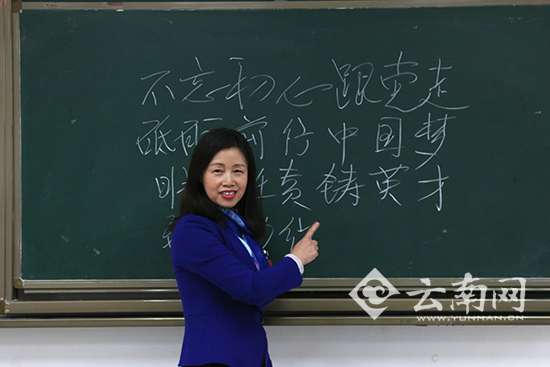 不忘初心跟党走
砥砺前行中国梦
明 责铸英才
云南网
WWW.YUNNAN.CN